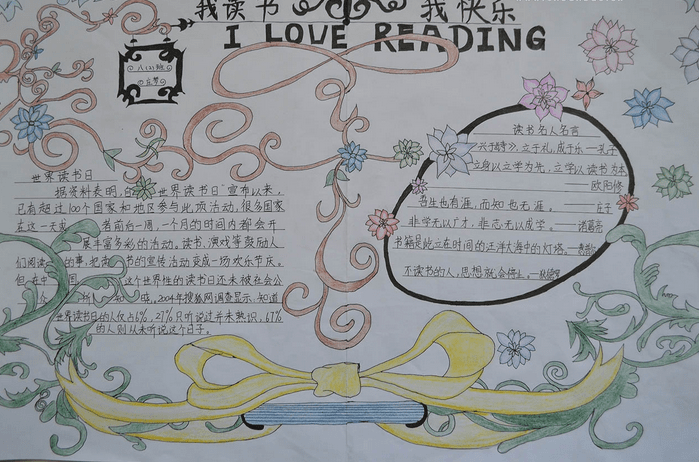 我读书 我快乐
I LOVE READING
八(3)班
世界读书日
据资料表明,自"世界读书日"宣布以来,
已有超过100个国家和地区参与此项活动,很多国家
在这一天或者前后一周,一个月的时间内都会开
展丰富多彩的活动。读书、演戏等鼓励人
们阅读的事,把读书的宣传活动变成一场欢乐节庆。
但在中国 这个世界性的读书日还未被社会公
2004年搜狐网调查显示,知道
世界读书日的人仅占6%,27%只听说过并未熟识,67%
的人则从未听说这个日子。
读书名人名言
兴于《诗》,立于礼,成于乐——孔子
立身以立学为先,立学以读书为本
——欧阳修
吾生也有涯,而知也无涯。——庄子
非学无以广才,非志无以成学。——诸葛亮
书籍是屹立在时间的汪洋大海中的灯塔。
不读书的人,思想就会停止。——狄德罗